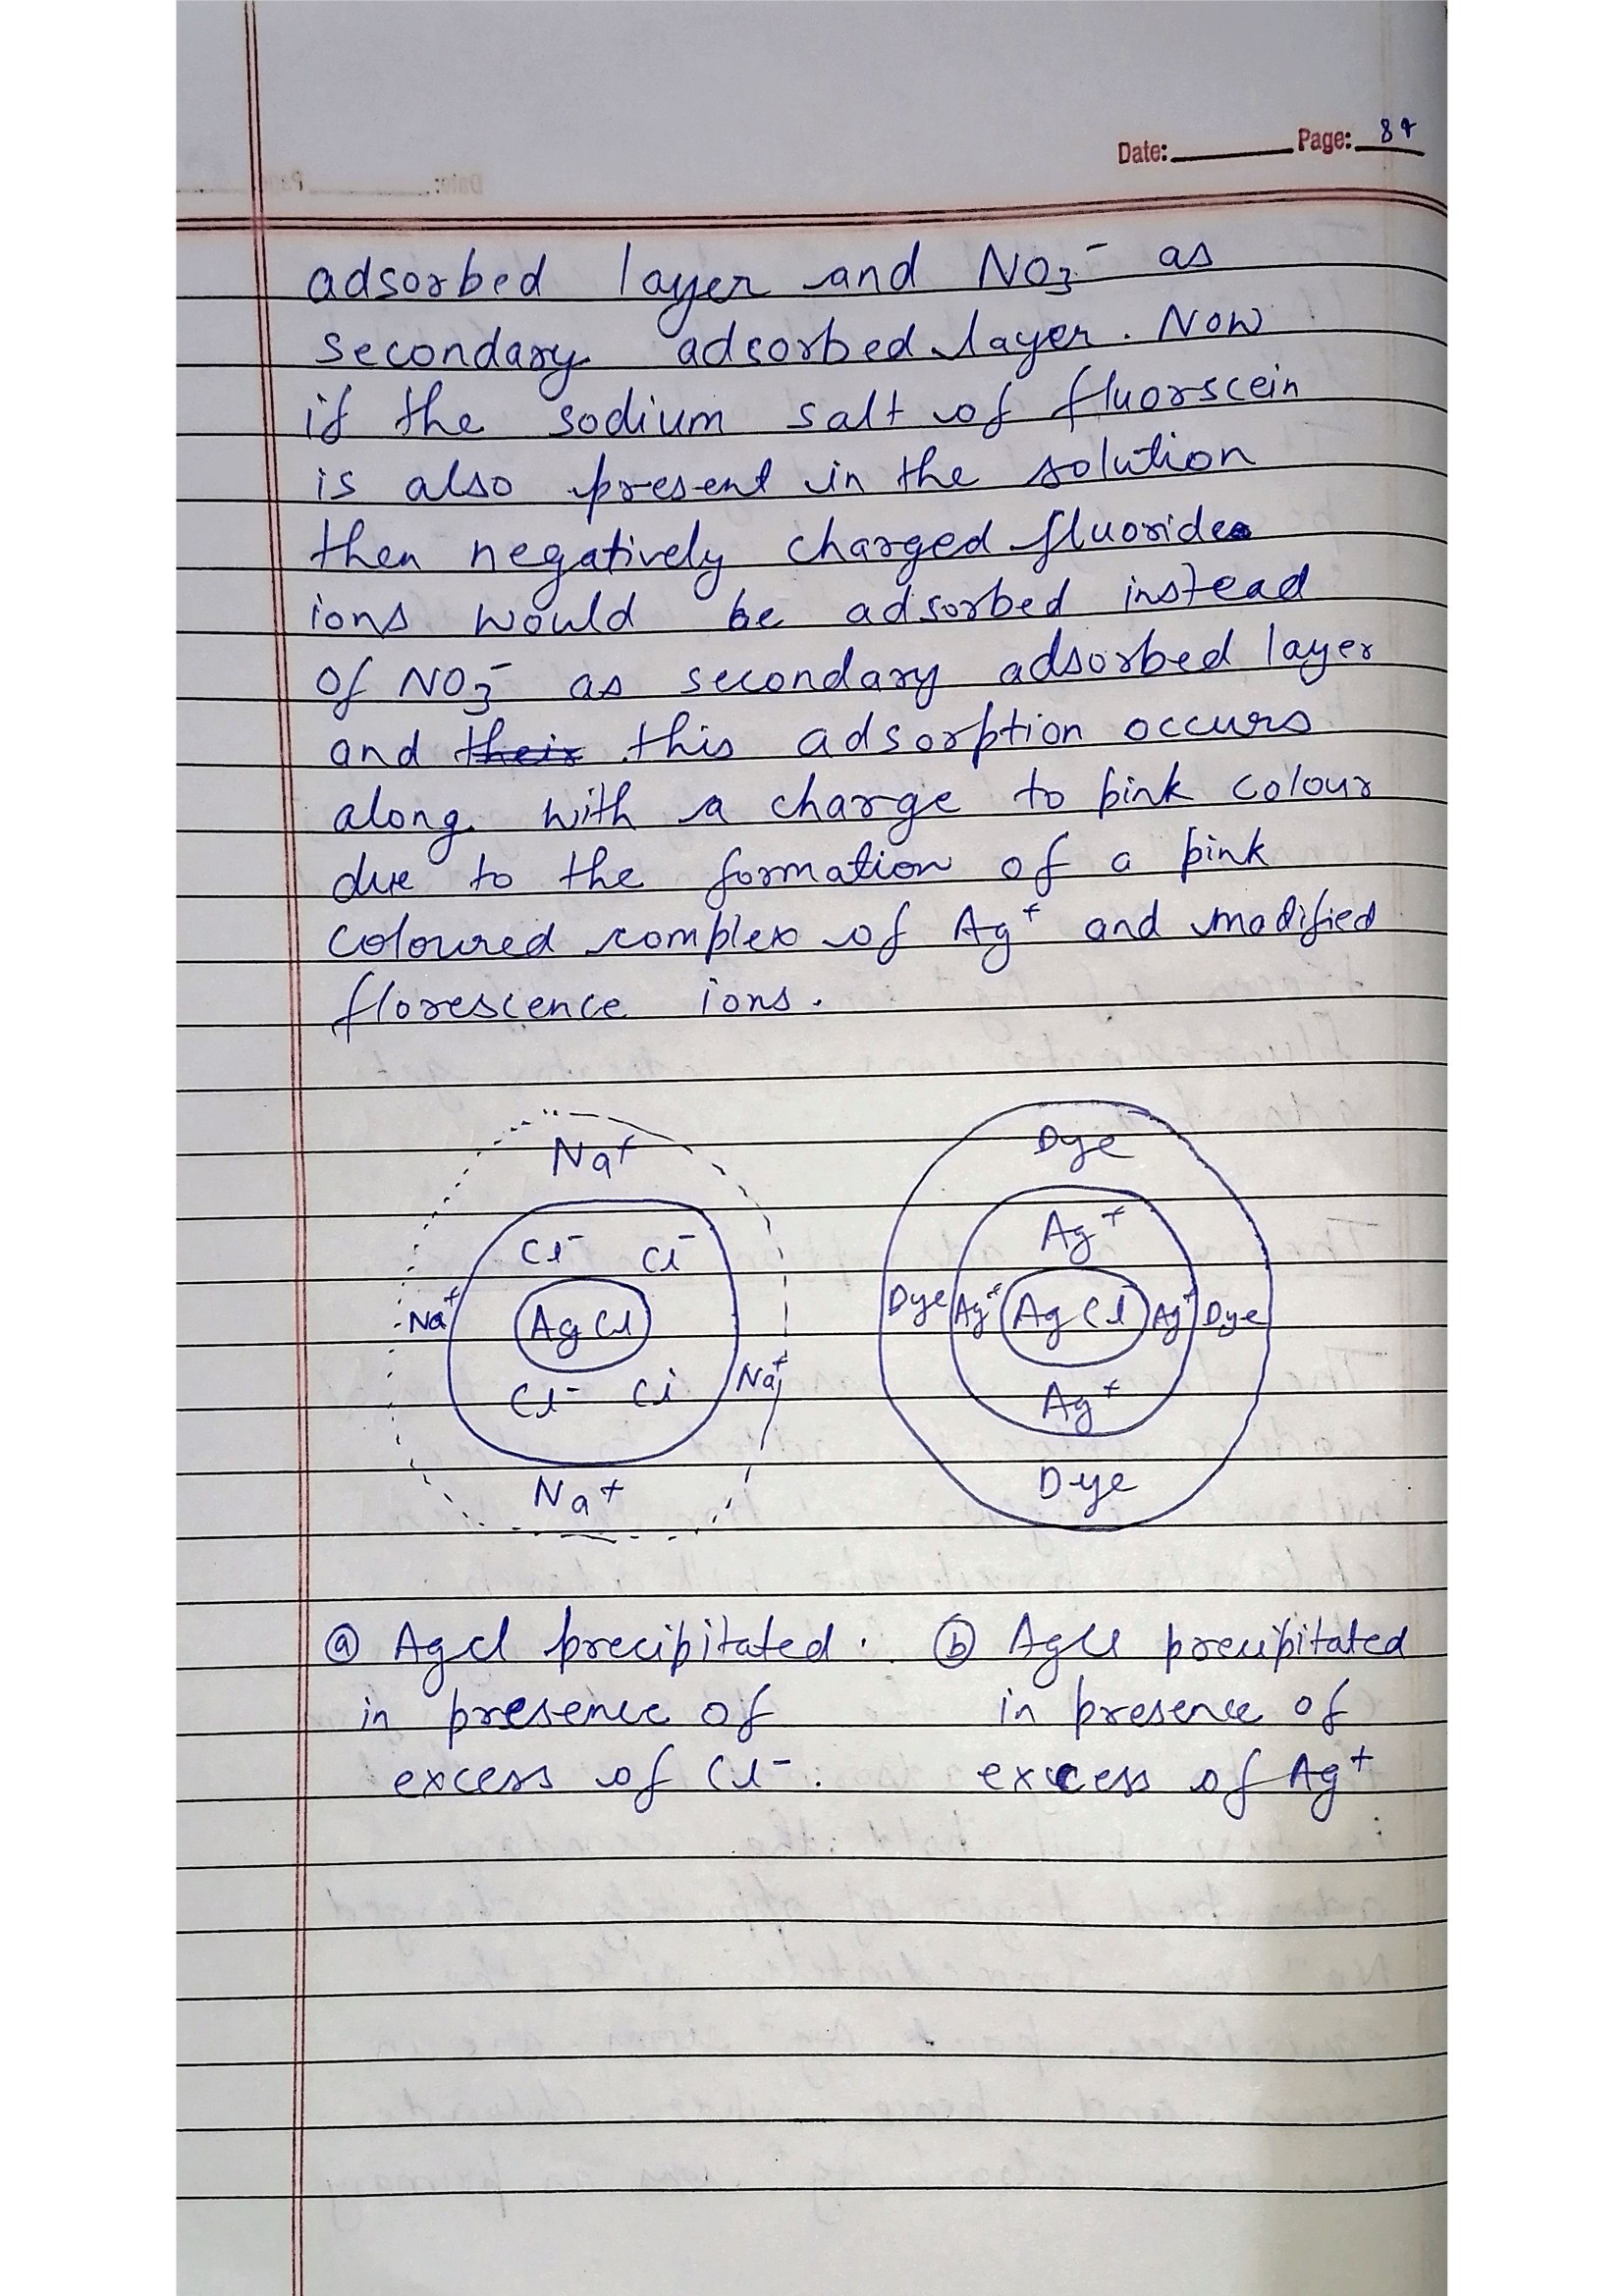 Date: Page: 89
adsorbed layer and NO3⁻ as
secondary adsorbed layer. Now
if the sodium salt of fluorscein
is also present in the solution
then negatively charged fluoride
ions would be adsorbed instead
of NO3⁻ as secondary adsorbed layer
and their this adsorption occurs
along with a charge to pink colour
due to the formation of a pink
coloured complex of Ag⁺ and modified
florescence ions.
Na⁺
Cl⁻ Cl⁻
Na⁺ AgCl Na⁺
Cl⁻ Cl
Na⁺
Dye
Ag⁺
Dye Ag⁺ AgCl Ag⁺ Dye
Ag⁺
Dye
ⓐ AgCl precipitated.
in presence of
excess of Cl⁻.
ⓑ AgCl precipitated
in presence of
excess of Ag⁺